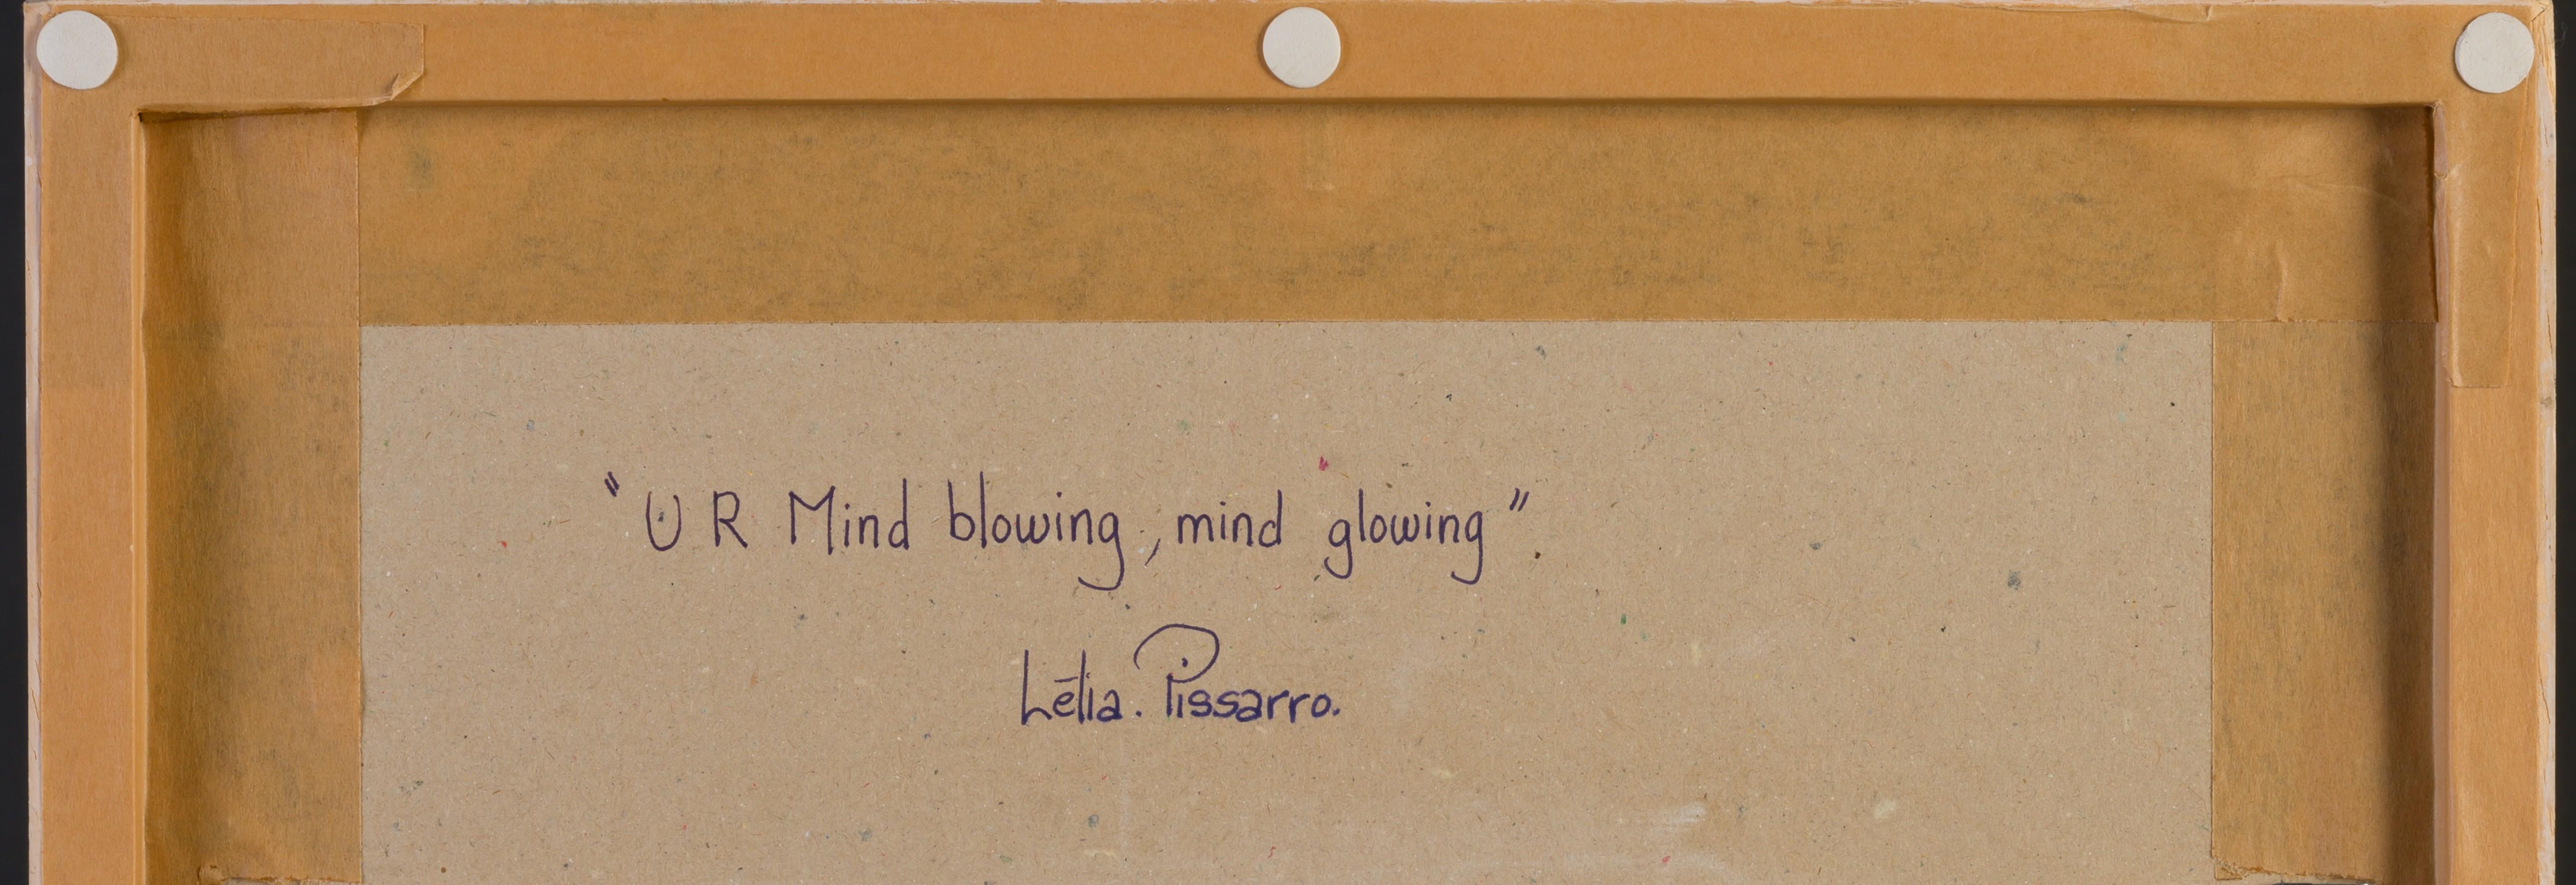 "U R Mind blowing, mind glowing".
Lélia. Pissarro.